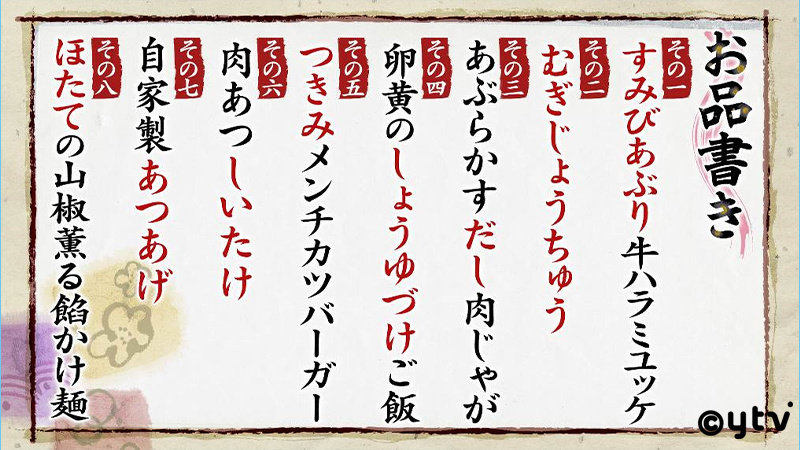 お品書き
その一
すみびあぶり牛ハラミユッケ
その二
むぎじょうちゅう
その三
あぶらかすだし肉じゃが
その四
卵黄のしょうゆづけご飯
その五
つきみメンチカツバーガー
その六
肉あつしいたけ
その七
自家製あつあげ
その八
ほたての山椒薫る餡かけ麺
©ytv